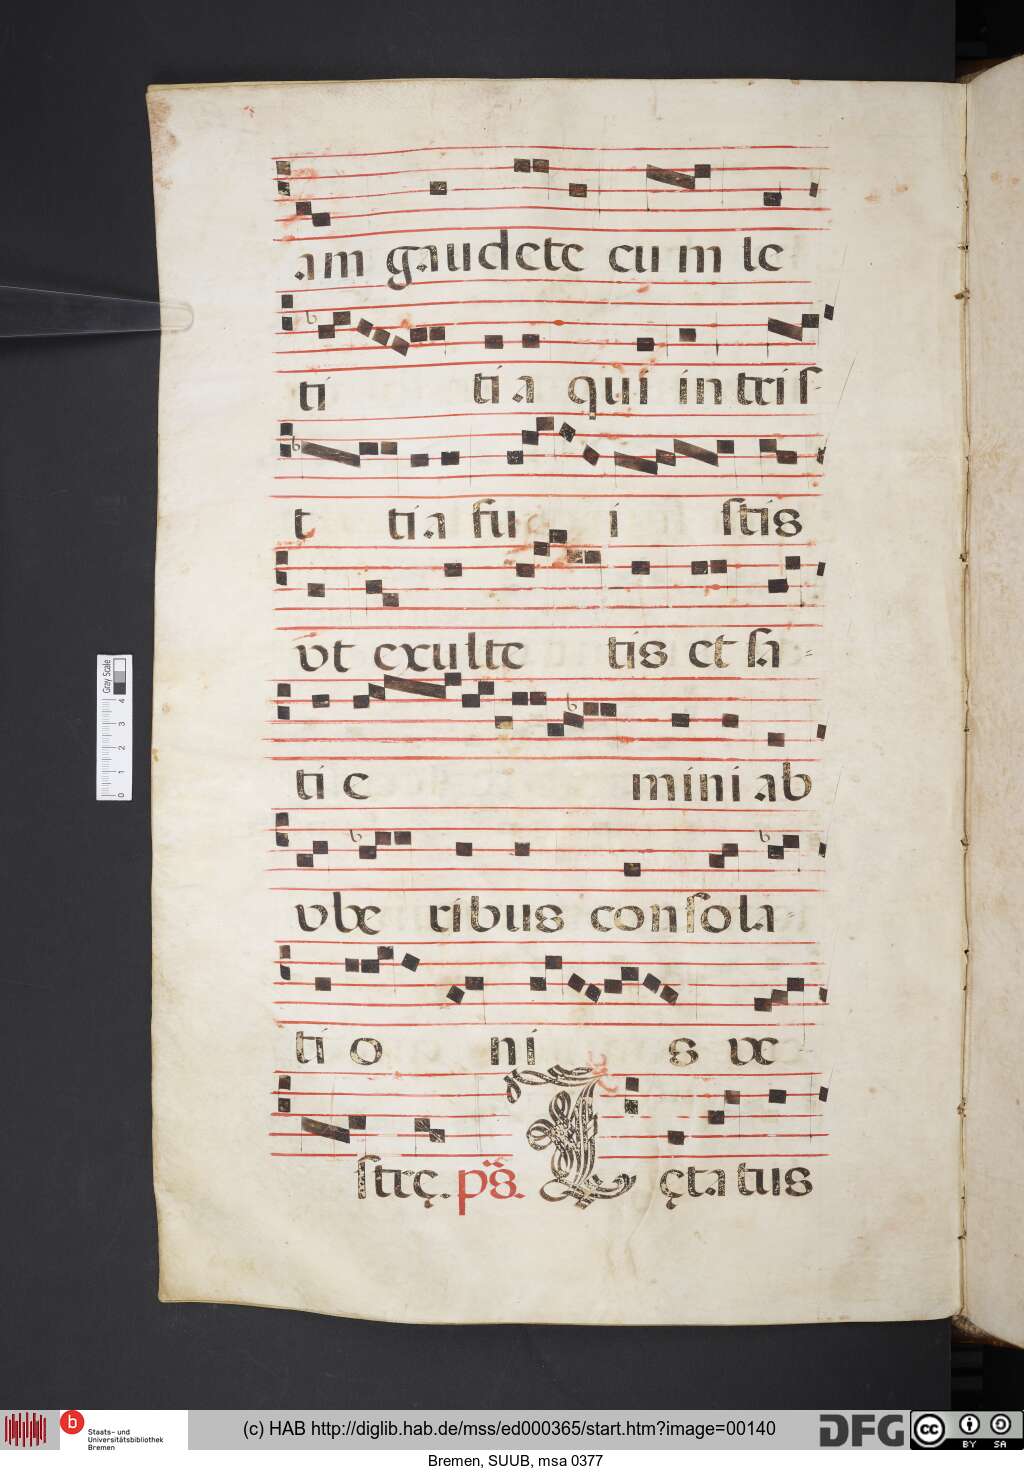 am gaudete cum le
ti tia qui in tris-
t tia fu i stis
vt exulte tis et sa=
ti e mini ab
vbe ribus consola=
ti o ni s ve
strę. ps. Lętatus
Gray Scale
0 1 2 3 4
b
Staats- und
Universitätsbibliothek
Bremen
(c) HAB http://diglib.hab.de/mss/ed000365/start.htm?image=00140
DFG
cc BY SA
Bremen, SUUB, msa 0377